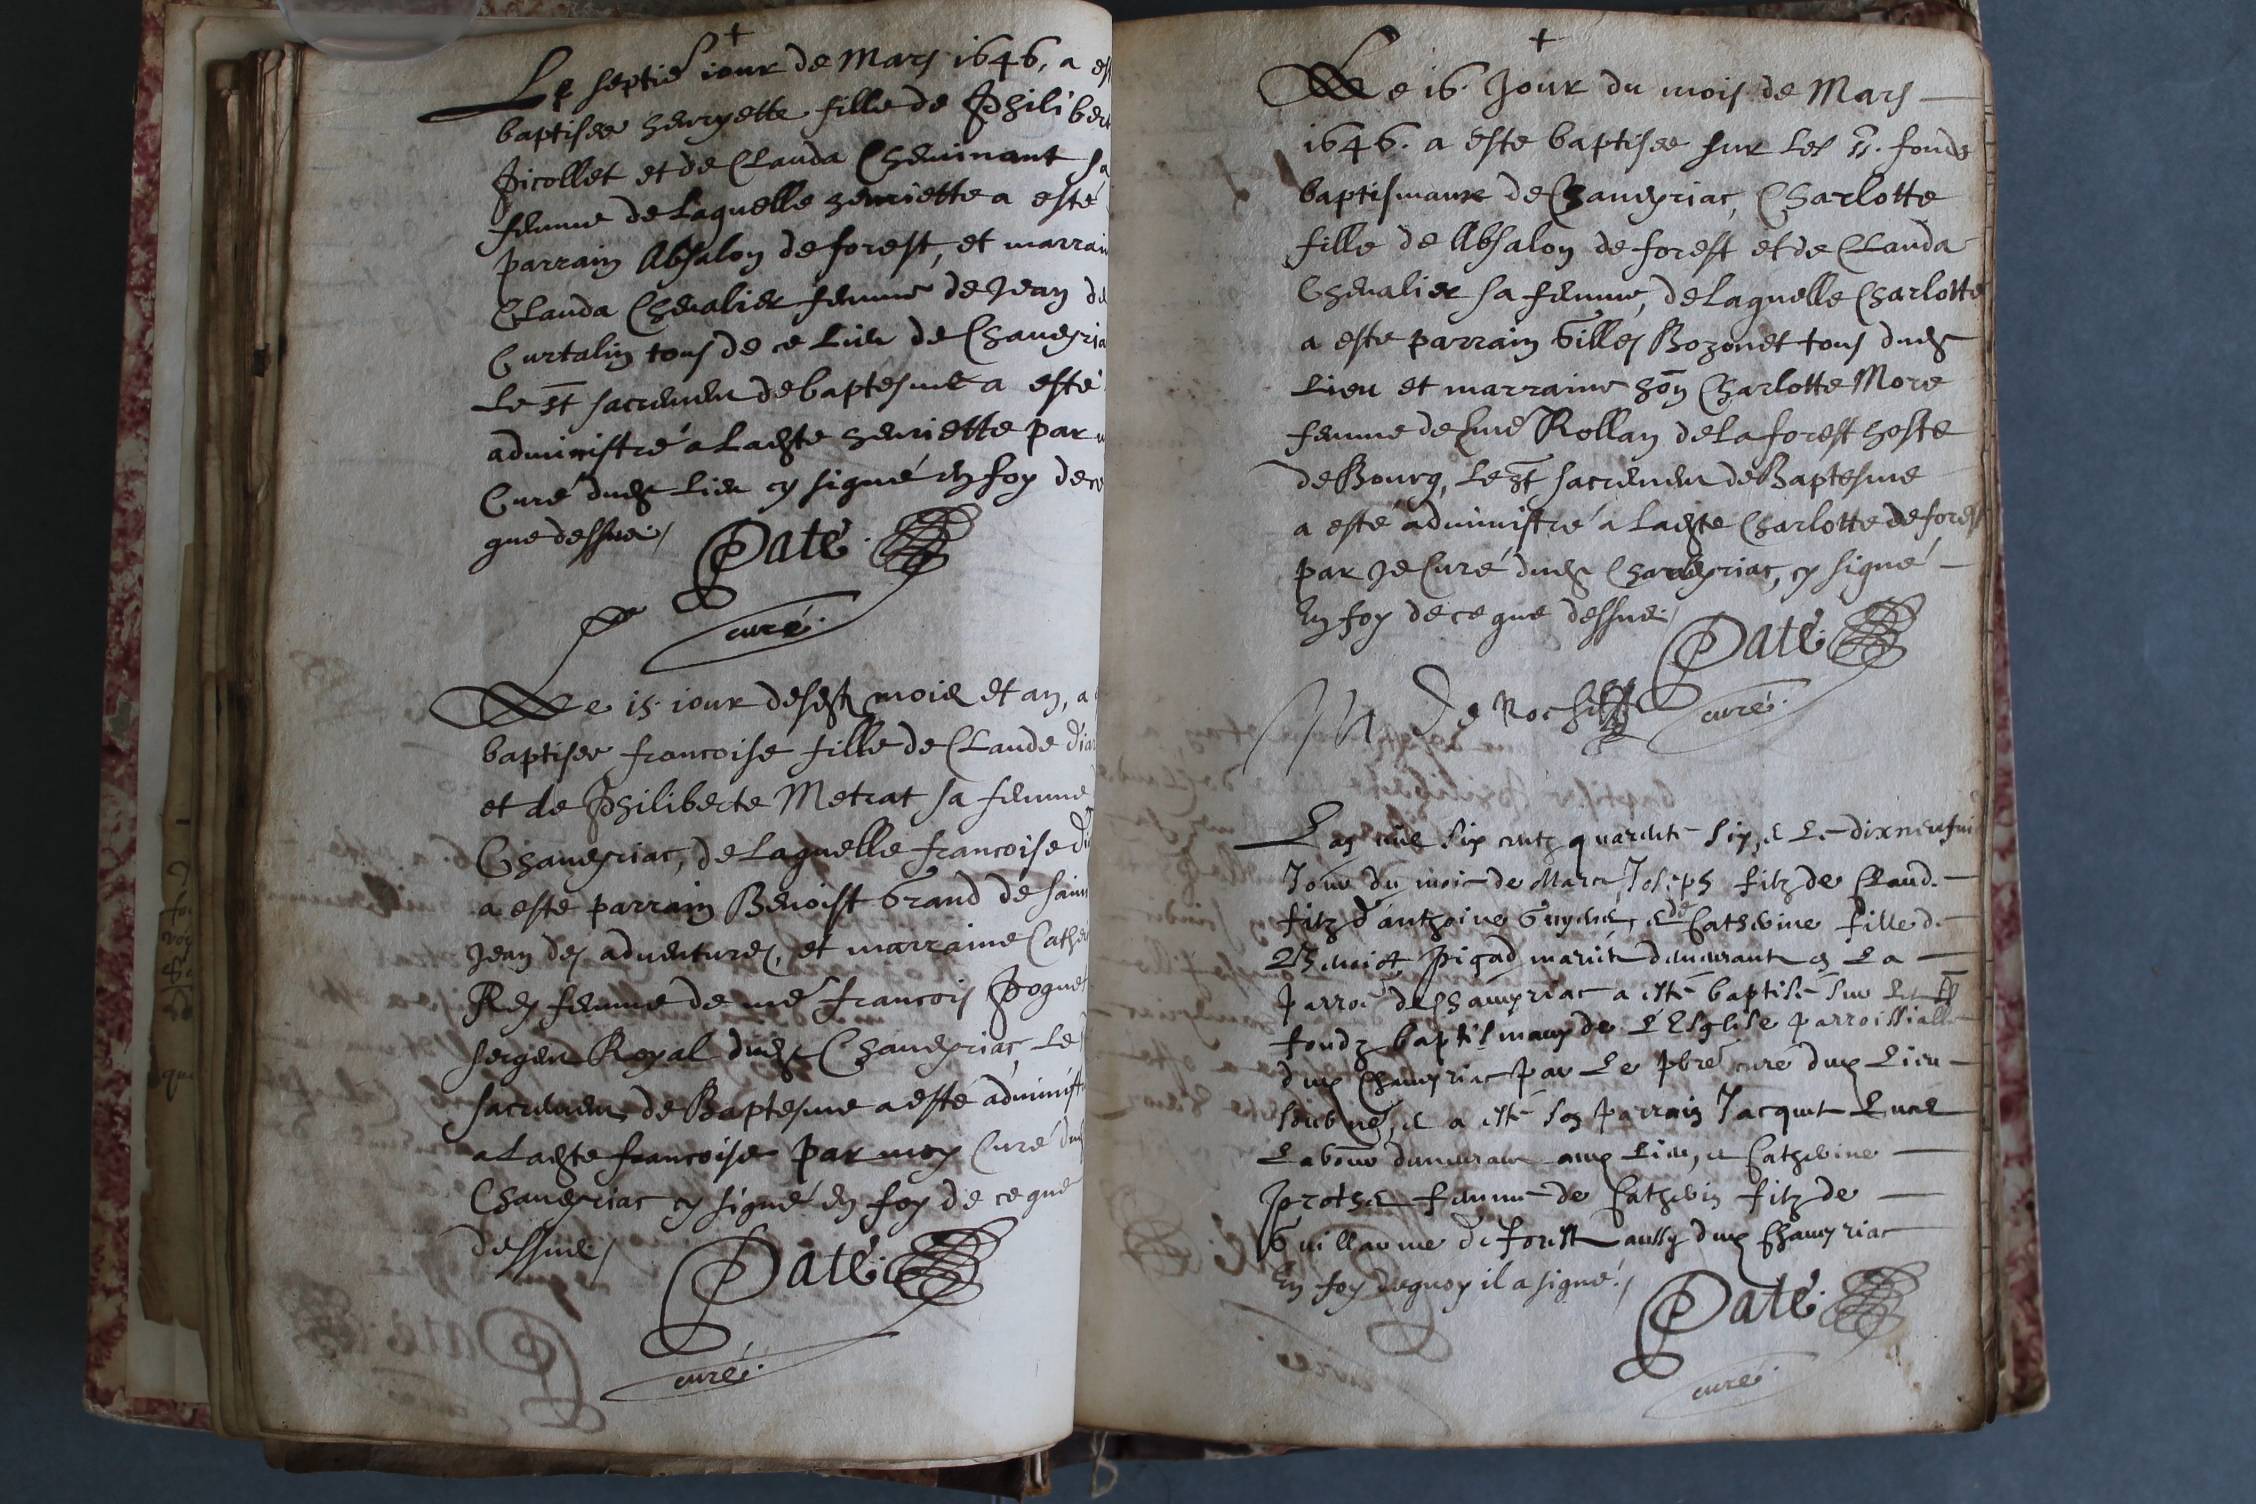 +
Le septié iour de Mars 1646, a est
baptisee henryette fille de Philibert
Picollet et de Clauda Cheminant sa
femme de laquelle henriette a esté
parrain Absalon de forest, et marrain
Clauda Chevalier femme de Jean de
Curtalin tous de ce lieu de Chaveyria
Le st sacremen de baptesme a esté
administré a ladte henriette par
Curé dudt lieu cy signé en foy de ce
que dessus./
Paté.
curé.
Le 15. iour desdt mois et an, a
baptisee francoise fille de Claude
et de Philiberte Metrat sa femme
Chaveyriac, de laquelle francoise
a este parrain Benoist Grand de saint
Jean des adventures, et marraine Cathe
Rey femme de me francois Poguet
sergen Royal dudt Chaveyriac, Le
sacremen de Baptesme a esté administ
a ladte francoise par moy Curé dud
Chaveyriac cy signé en foy de ce que
dessus./
Paté.
curé.
+
Le 16. Jour du mois de Mars
1646. a este baptisee sur les SS. fonds
baptismaux de Chaveyriac, Charlotte
fille de Absalon de forest et de Clauda
Chevalier sa femme, de laquelle Charlotte
a este parrain Gilles Bozonet tous dudt
Lieu et marraine hon Charlotte More
femme de Rollan de la forest hoste
de Bourg, Le st sacremen de Baptesme
a esté administré a ladte Charlotte de forest
par je Curé dudt Chaveyriac, cy signé
En foy de ce que dessus./
Paté.
curé.
De Roch
Lan mil six centz quarente six, et le dixneufui
Jour du mois de Mars Joseph filz de Claude
filz d'anthoine et de Catherine fille de
Benoist Pigad mariés demeurant en La
Parroe de Chaveyriac a esté baptisé sur les SS
fondz baptismaux de L'Esglise parroissialle
dud Chaveyriac par Le pbre curé dud Lieu
soubné, et a esté son parrain Jacques
Labour demeurant aud Lieu, et Catherine
femme de Catherin filz de
Guillaume de Forest aussy dud Chaveyriac
En foy dequoy il a signé./
Paté.
curé.